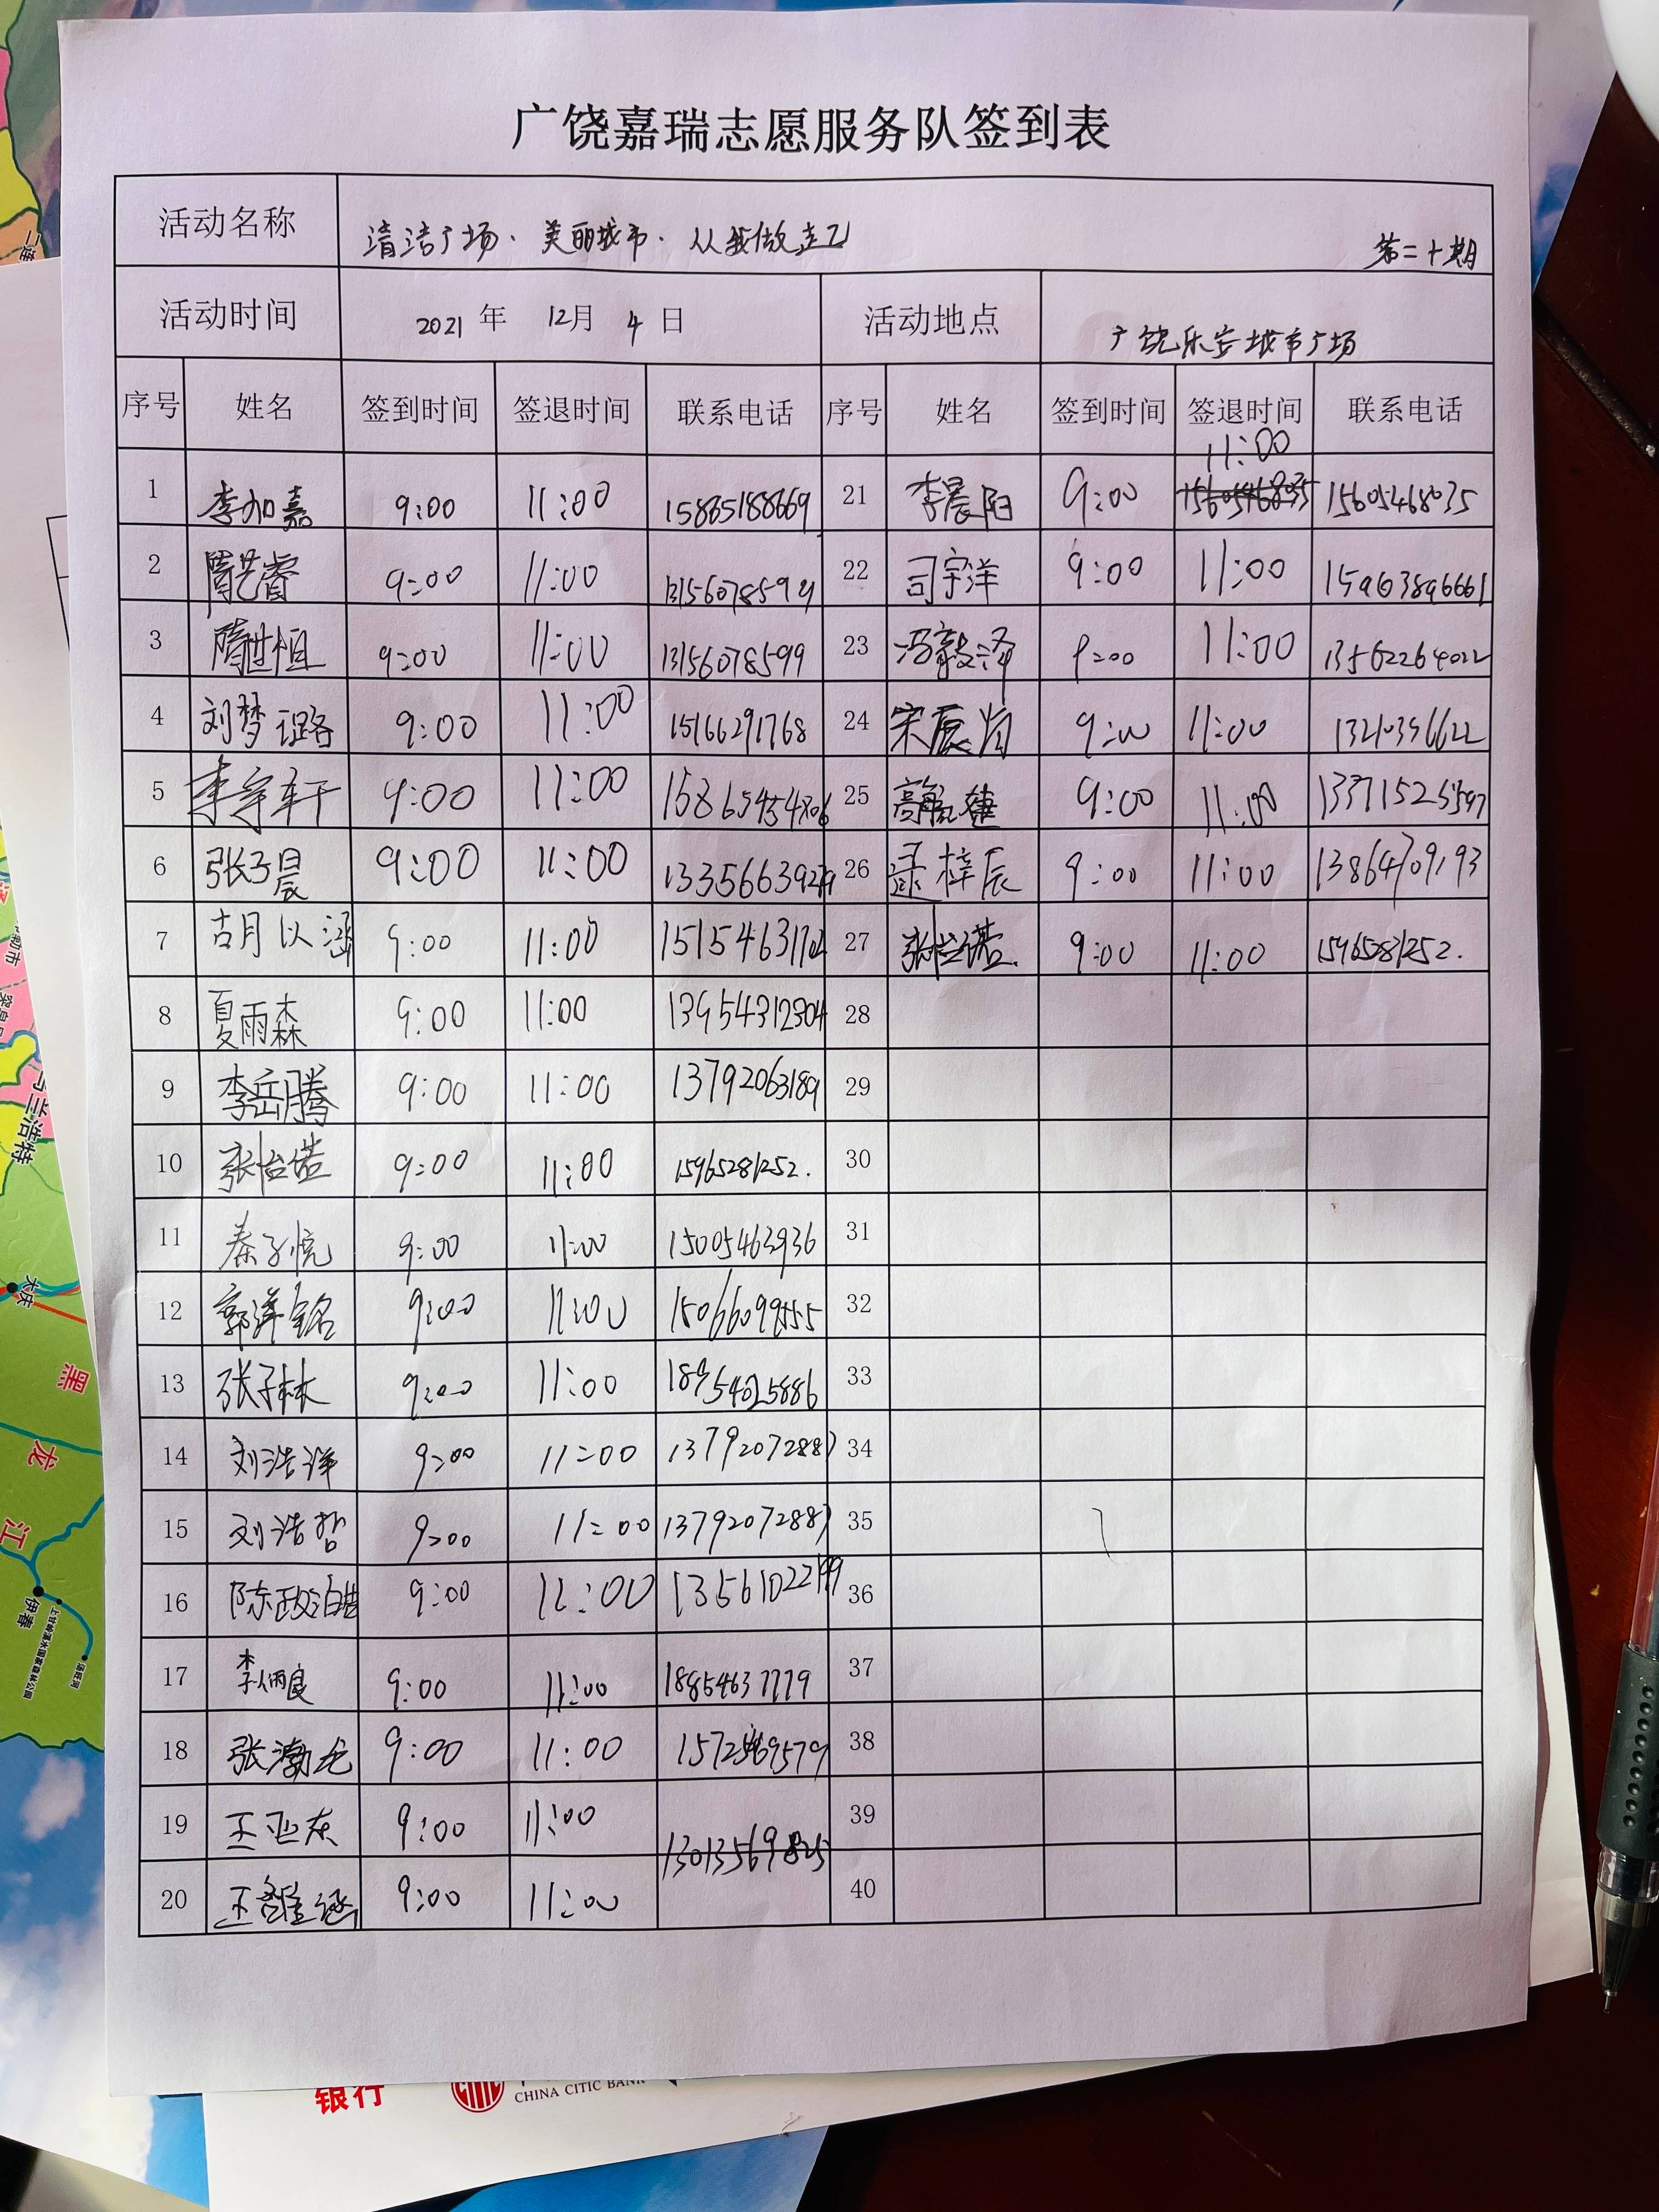 广饶嘉瑞志愿服务队签到表
活动名称 清洁广场·美丽城市·从我做起 第二十期
活动时间 2021年 12月 4日 活动地点 广饶乐安城市广场
序号 姓名 签到时间 签退时间 联系电话 序号 姓名 签到时间 签退时间 联系电话
1 李加嘉 9:00 11:00 15865188669 21 李晨阳 9:00 11:00 15605468035
2 隋艺睿 9:00 11:00 22 司宇洋 9:00 11:00
3 隋世恒 9:00 11:00 13156078599 23 冯毅泽 9:00 11:00 13562264022
4 刘梦璐 9:00 11:00 15166291768 24 9:00 11:00
5 李宇轩 9:00 11:00 25 9:00 11:00
6 张子晨 9:00 11:00 26 逯梓辰 9:00 11:00 13864709193
7 胡以涵 9:00 11:00 27 张怡诺 9:00 11:00 15965281252.
8 夏雨森 9:00 11:00 13954312304 28
9 李岳腾 9:00 11:00 13792063189 29
10 张怡诺 9:00 11:00 15965281252. 30
11 秦子悦 9:00 11:00 15005463936 31
12 郭洋铭 9:00 11:00 15066099555 32
13 张子林 9:00 11:00 18954025886 33
14 刘浩洋 9:00 11:00 13792072887 34
15 刘浩哲 9:00 11:00 13792072887 35
16 陈政浩 9:00 11:00 36
17 9:00 11:00 18854637779 37
18 9:00 11:00 38
19 王亚东 9:00 11:00 39
20 9:00 11:00 40
银行
CHINA CITIC BANK
黑
龙
江
大庆
伊春
兰浩特